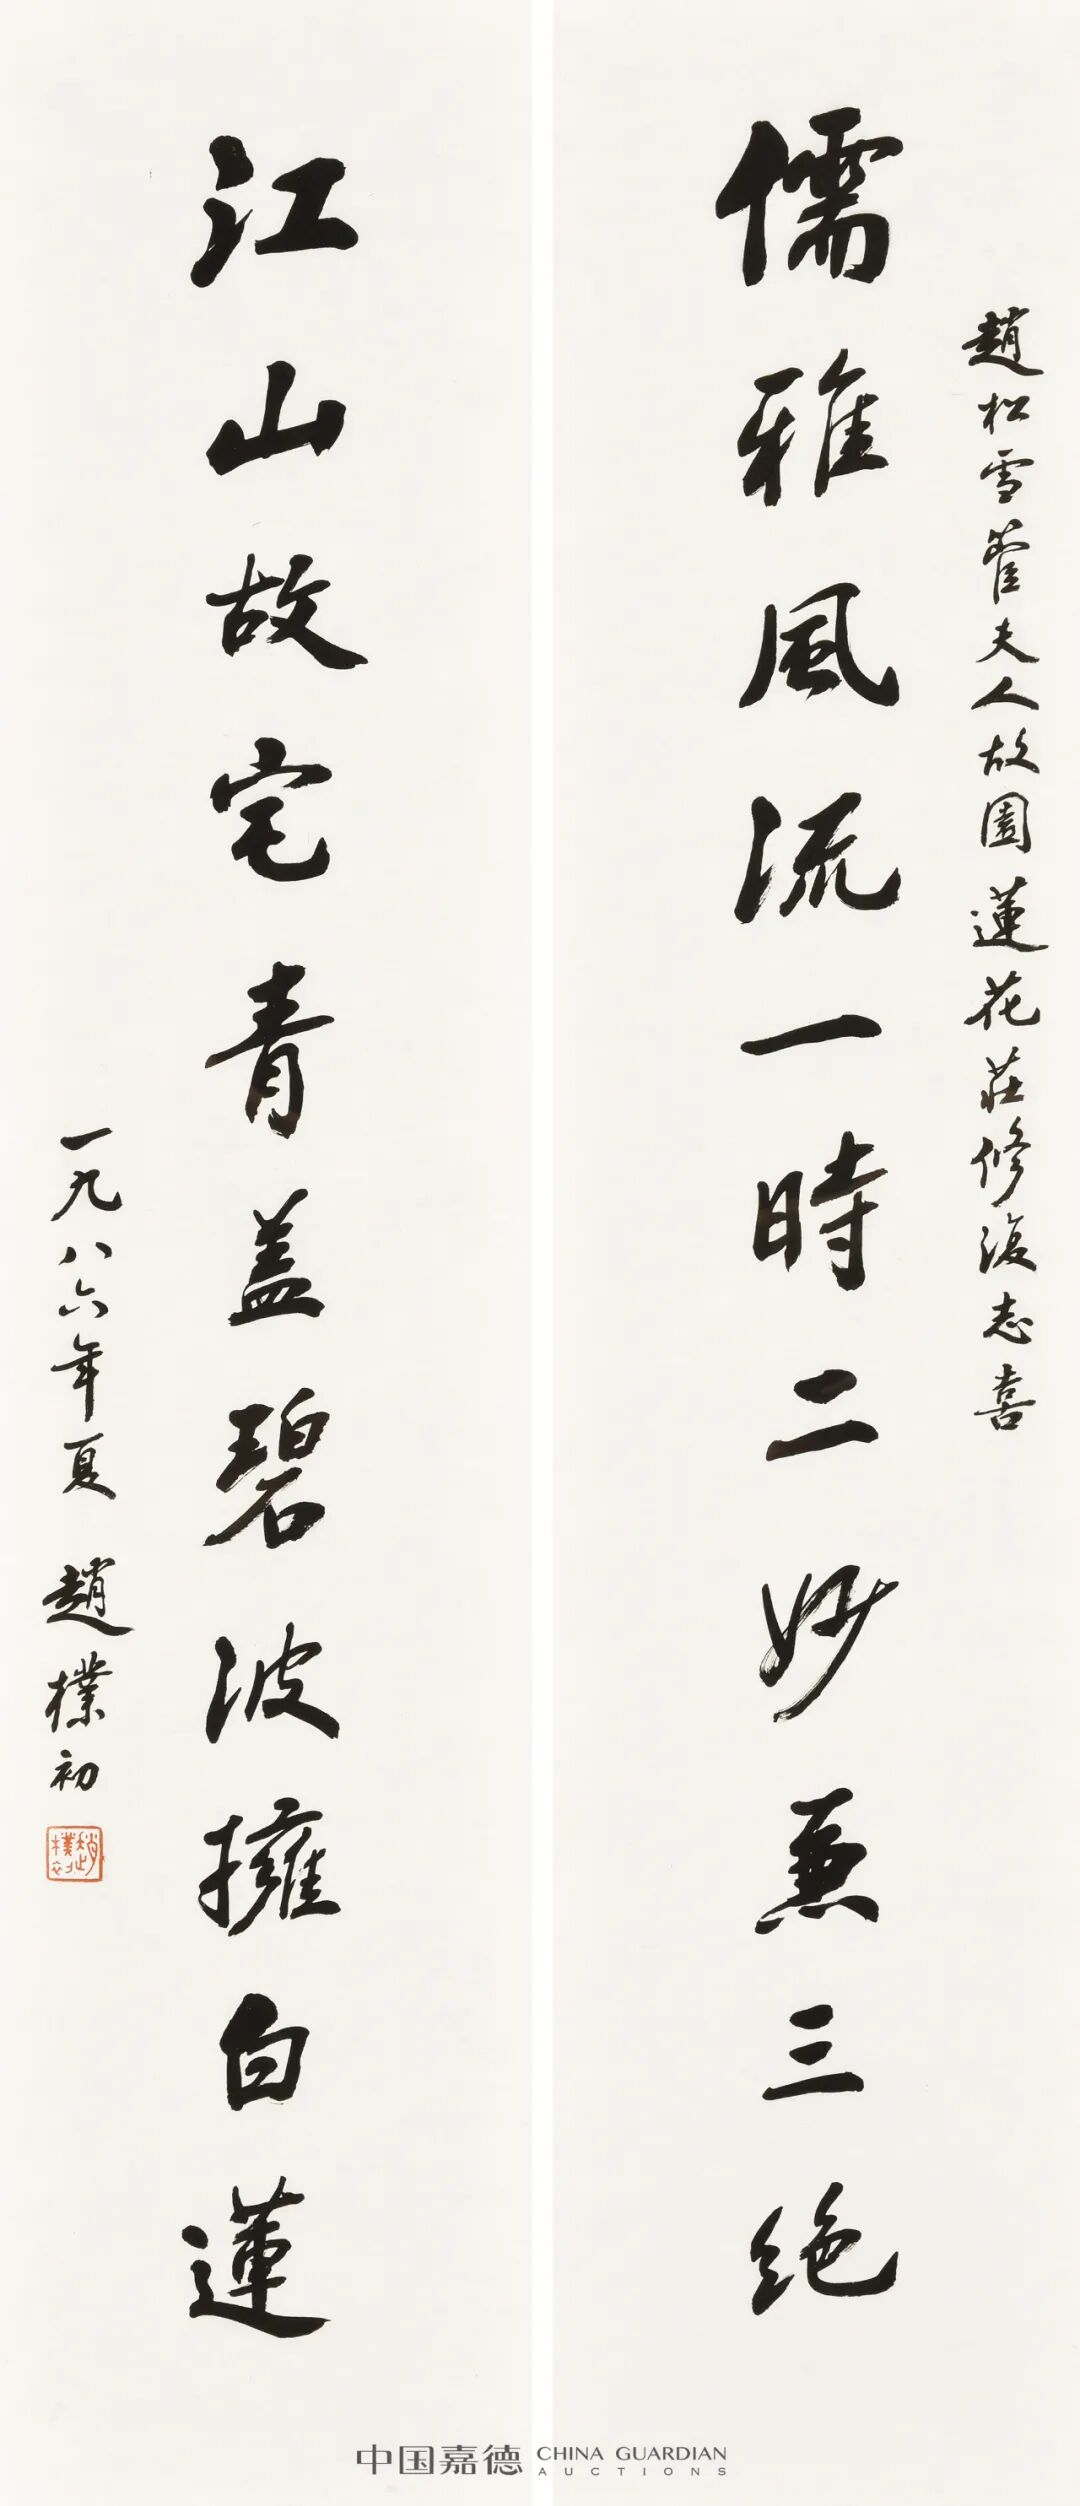 趙松雪管夫人故園蓮花莊修復志喜
儒雅風流一時二妙兼三绝
江山故宅青盖碧波擁白蓮
一九八六年夏 趙樸初
趙樸初
中国嘉德 CHINA GUARDIAN
AUCTIONS